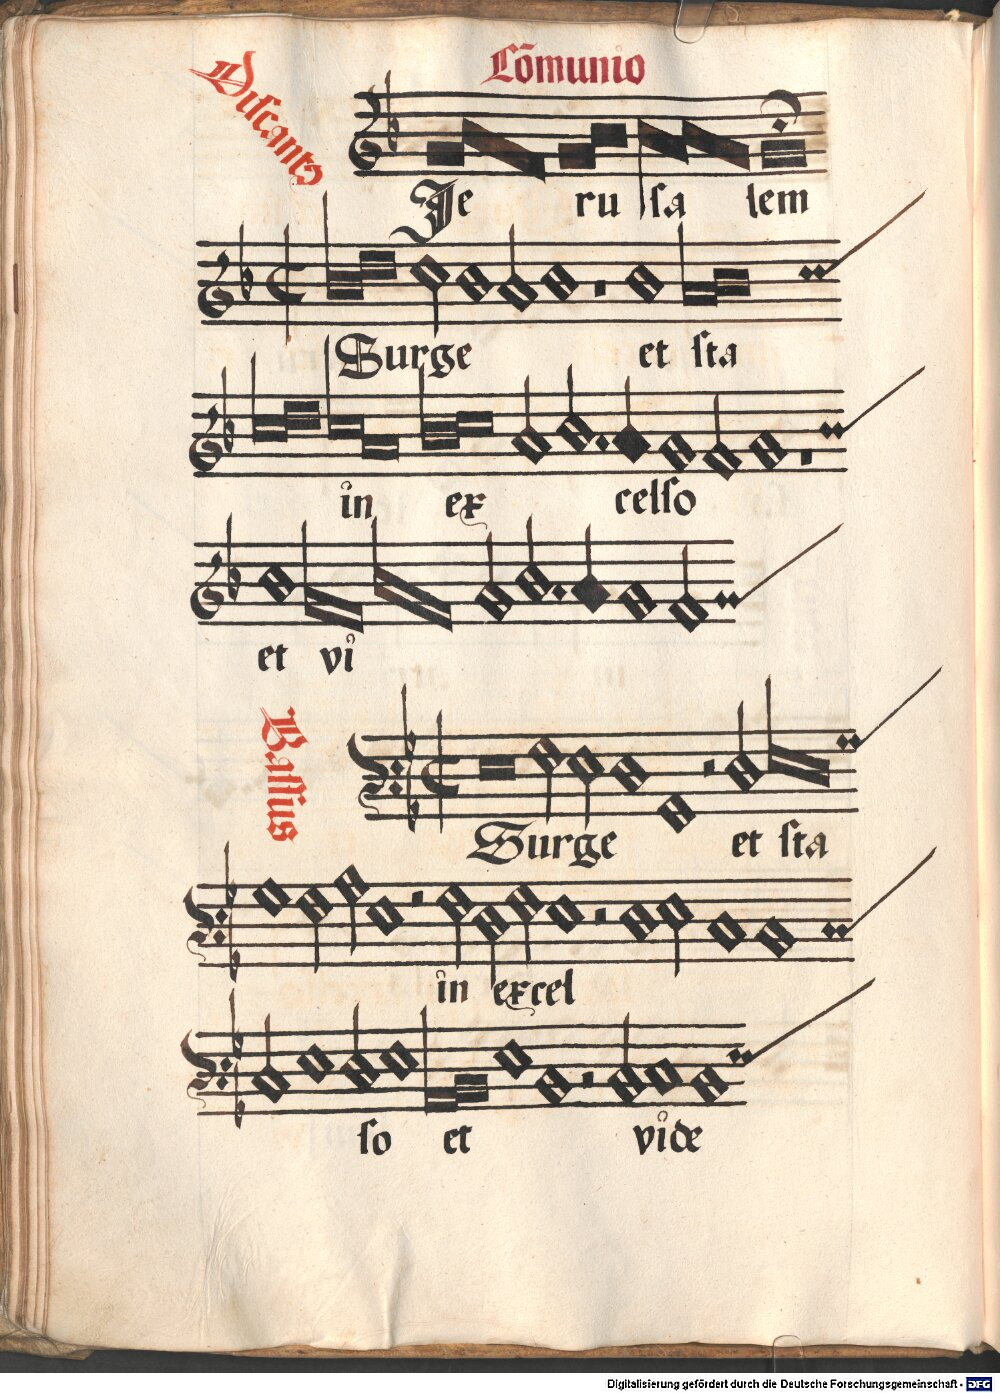 Cōmunio
Discantꝯ
Je ru sa lem
Surge et sta
in ex celso
et vi
Bassus
Surge et sta
in excel
so et vide
Digitalisierung gefördert durch die Deutsche Forschungsgemeinschaft - DFG